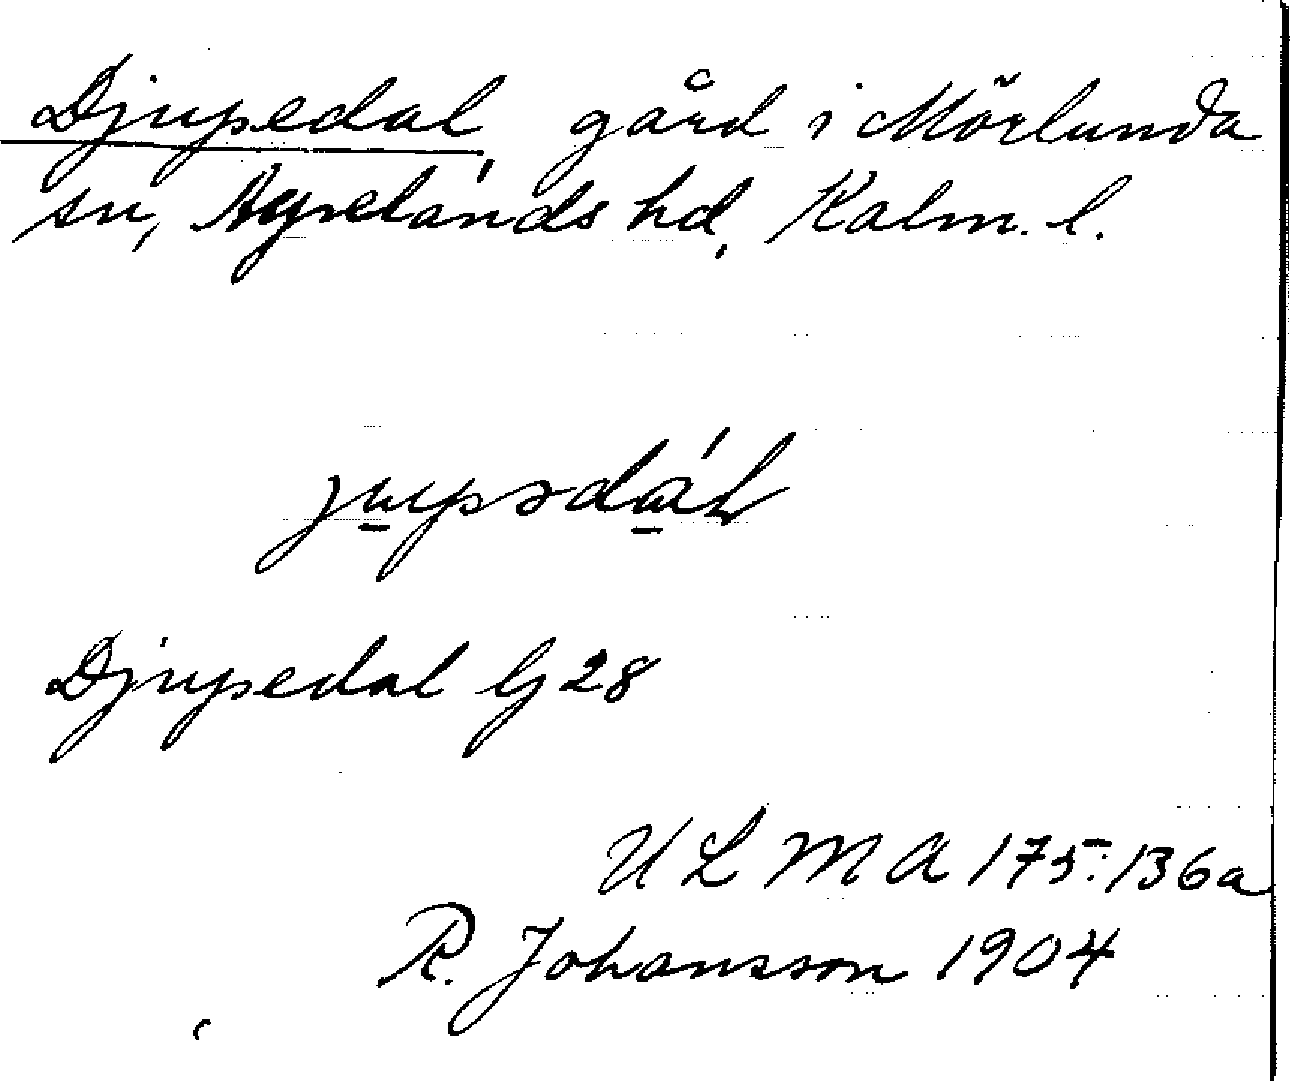 Djupedal, gård i Mörlunda
sn, Aspelands hd, Kalm. l.
jupədál
Djupedal G 28
ULMA 175:136a
R. Johansson 1904